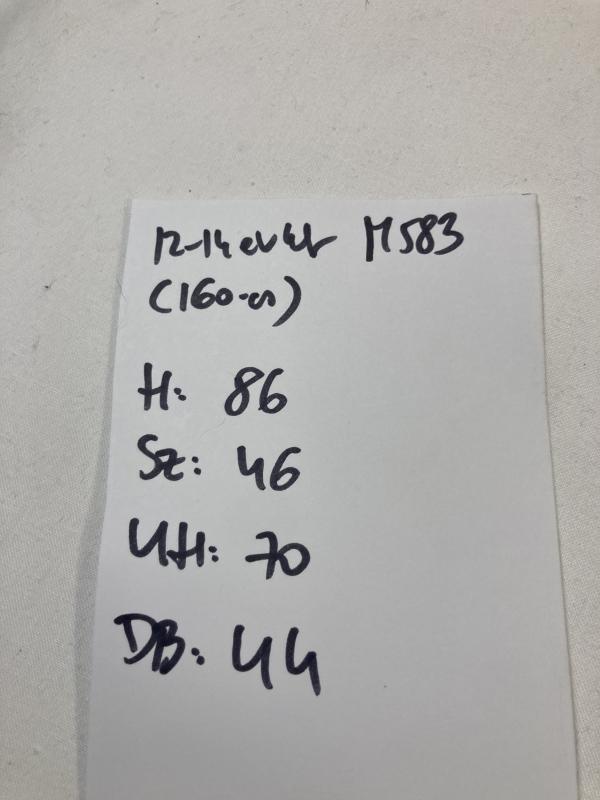 12-14 évest M583
(160-as)
H: 86
Sz: 46
UH: 70
DB: 44